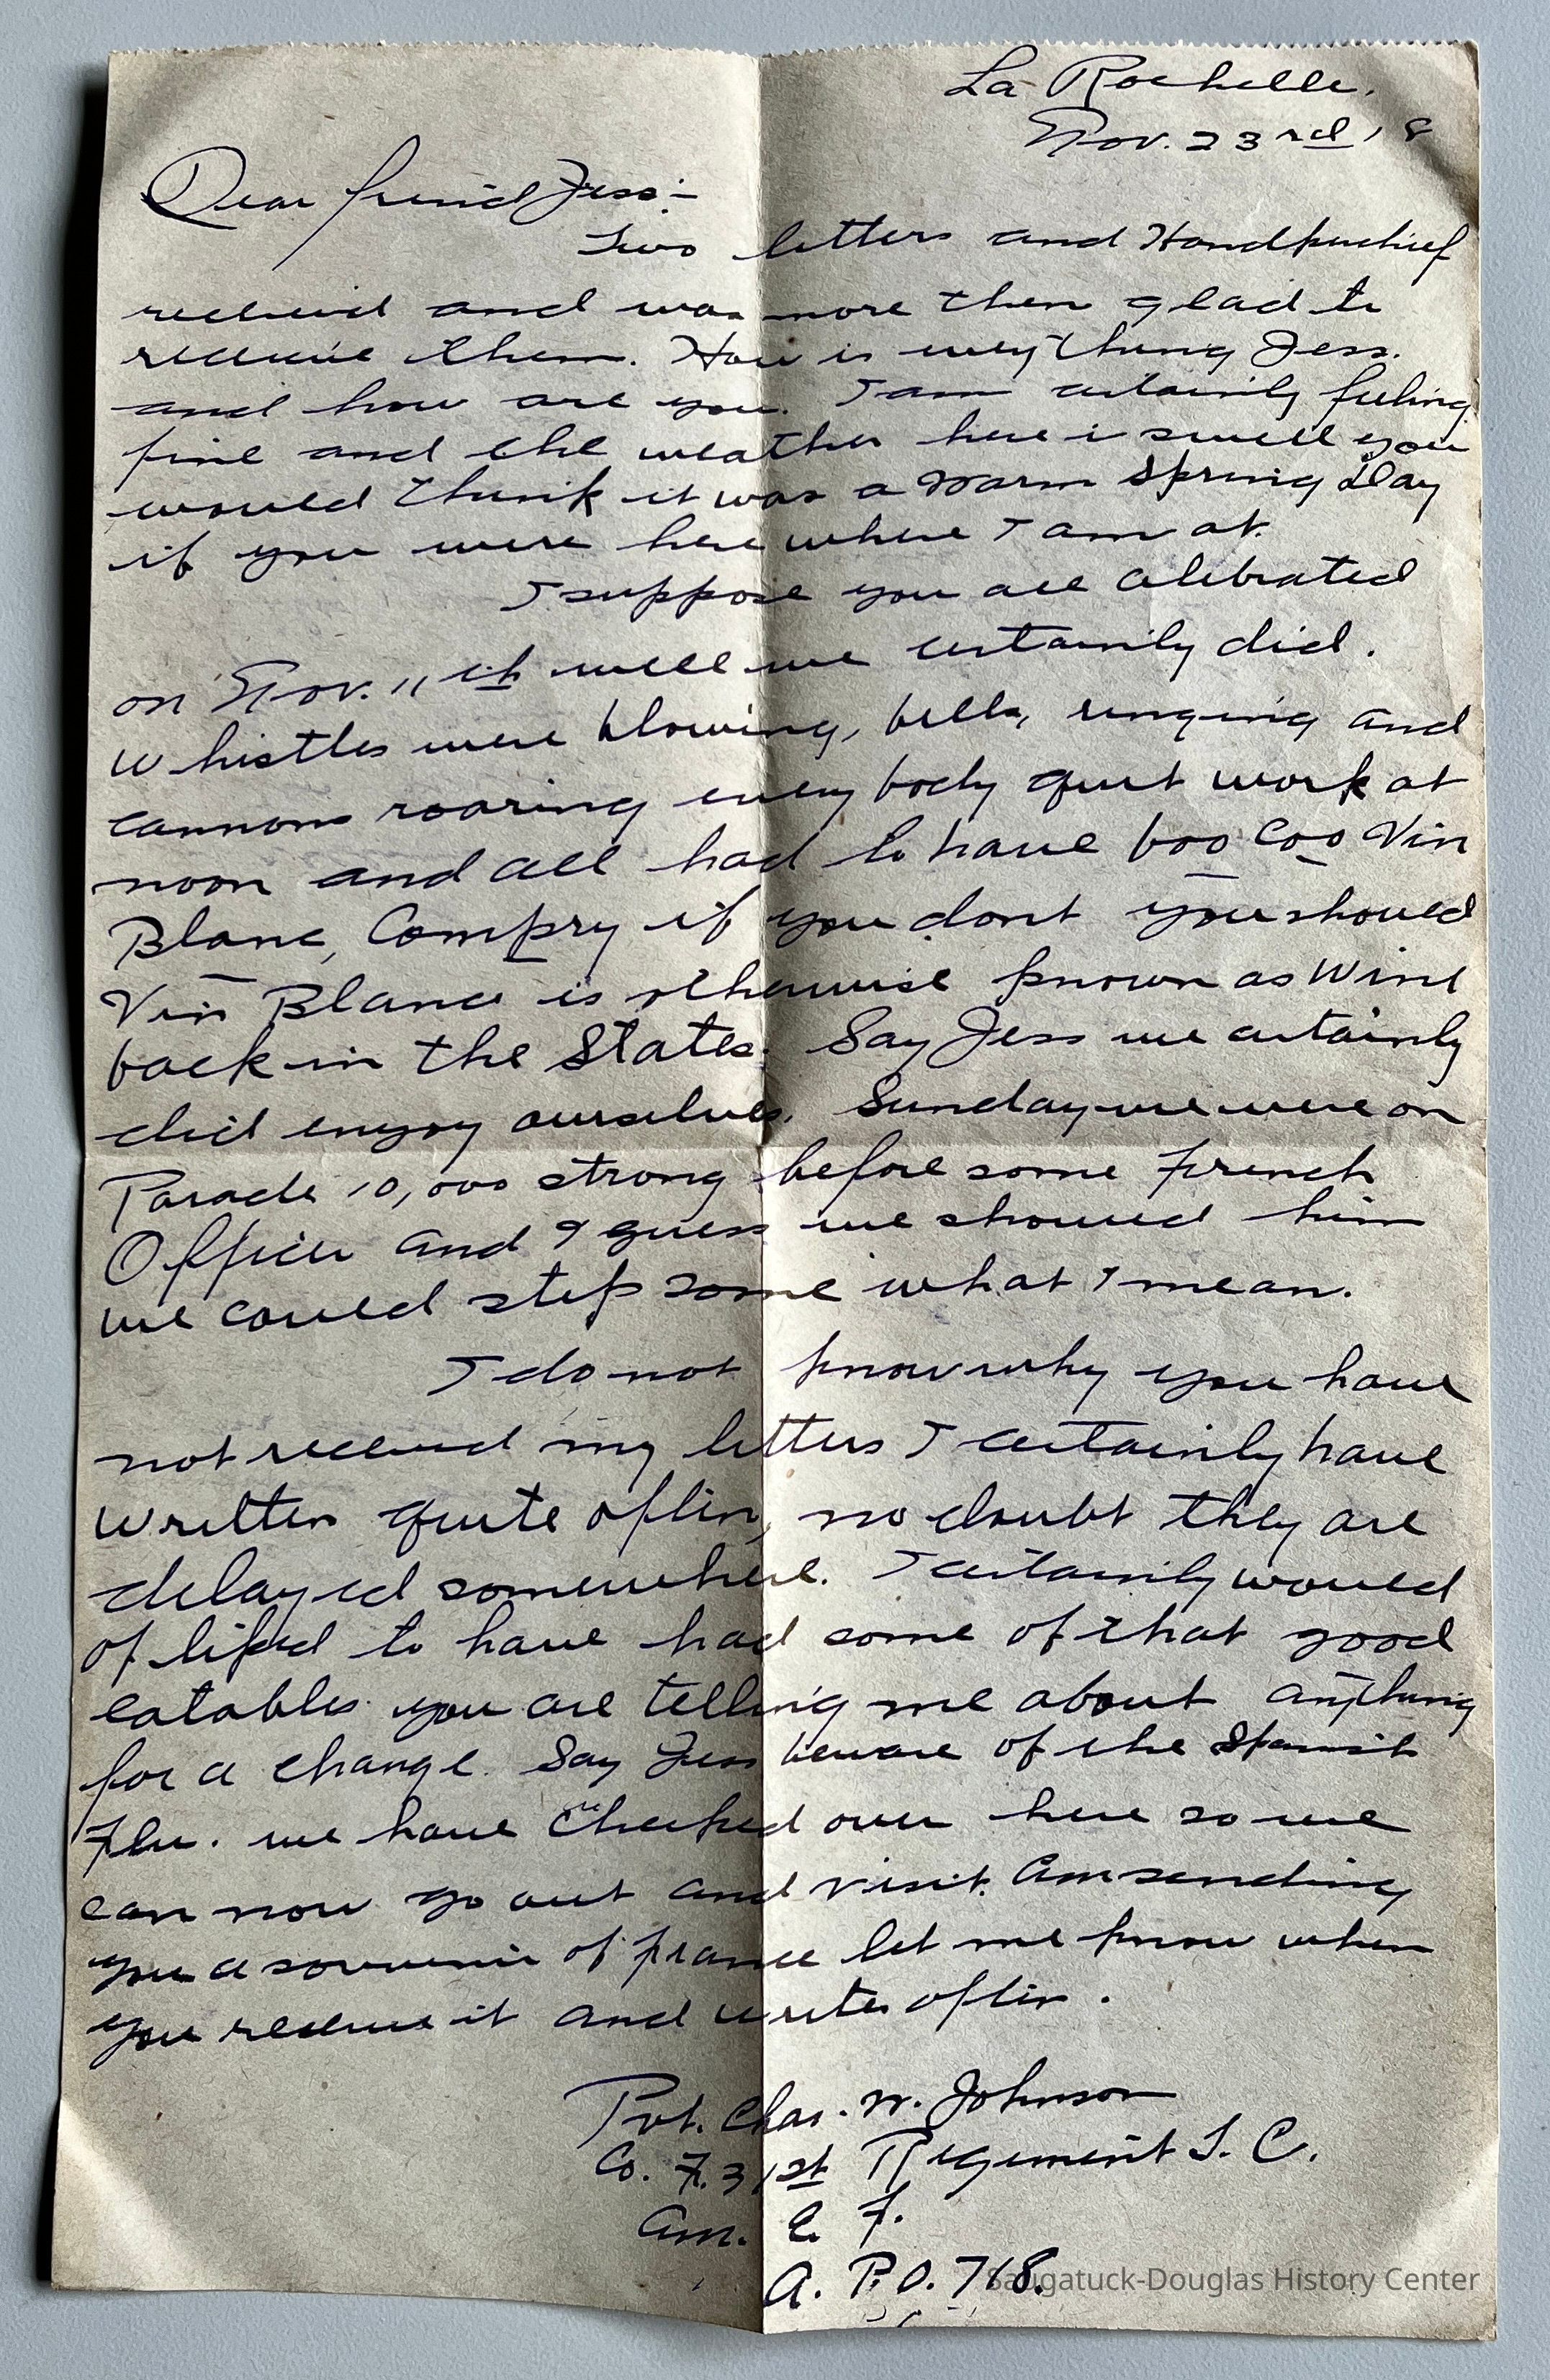 La Rochelle.
Nov. 23rd, 18
Dear friend Jess:-
Two letters and Handkerchief
received and was more then glad to
receive them. How is everything Jess.
and how are you. I am certainly feeling
fine and the weather here is swell you
would think it was a warm Spring Day
if you were here where I am at.
I suppose you all celebrated
on Nov. 11th well we certainly did.
Whistles were blowing, bells, ringing and
cannons roaring every body quit work at
noon and all had to have boo coo Vin
Blanc, Compry if you dont you should
Vin Blanc is otherwise known as Wine
back in the States. Say Jess we certainly
did enjoy ourselves. Sunday we were on
Parade 10,000 strong before some French
Officer and I guess we showed him
we could step some what I mean.
I do not know why you have
not received my letters I certainly have
written quite often, no doubt they are
delayed somewhere. I certainly would
of liked to have had some of that good
eatables you are telling me about anything
for a change. Say Jess beware of the Spanish
Flu. we have checked over here so we
can now go out and visit. Am sending
you a souvenir of france let me know when
you receive it and write often.
Pvt. Chas. W. Johnson
Co. F. 31st Regement T. C.
Am. E. F.
A. P.O. 718.
Saugatuck-Douglas History Center